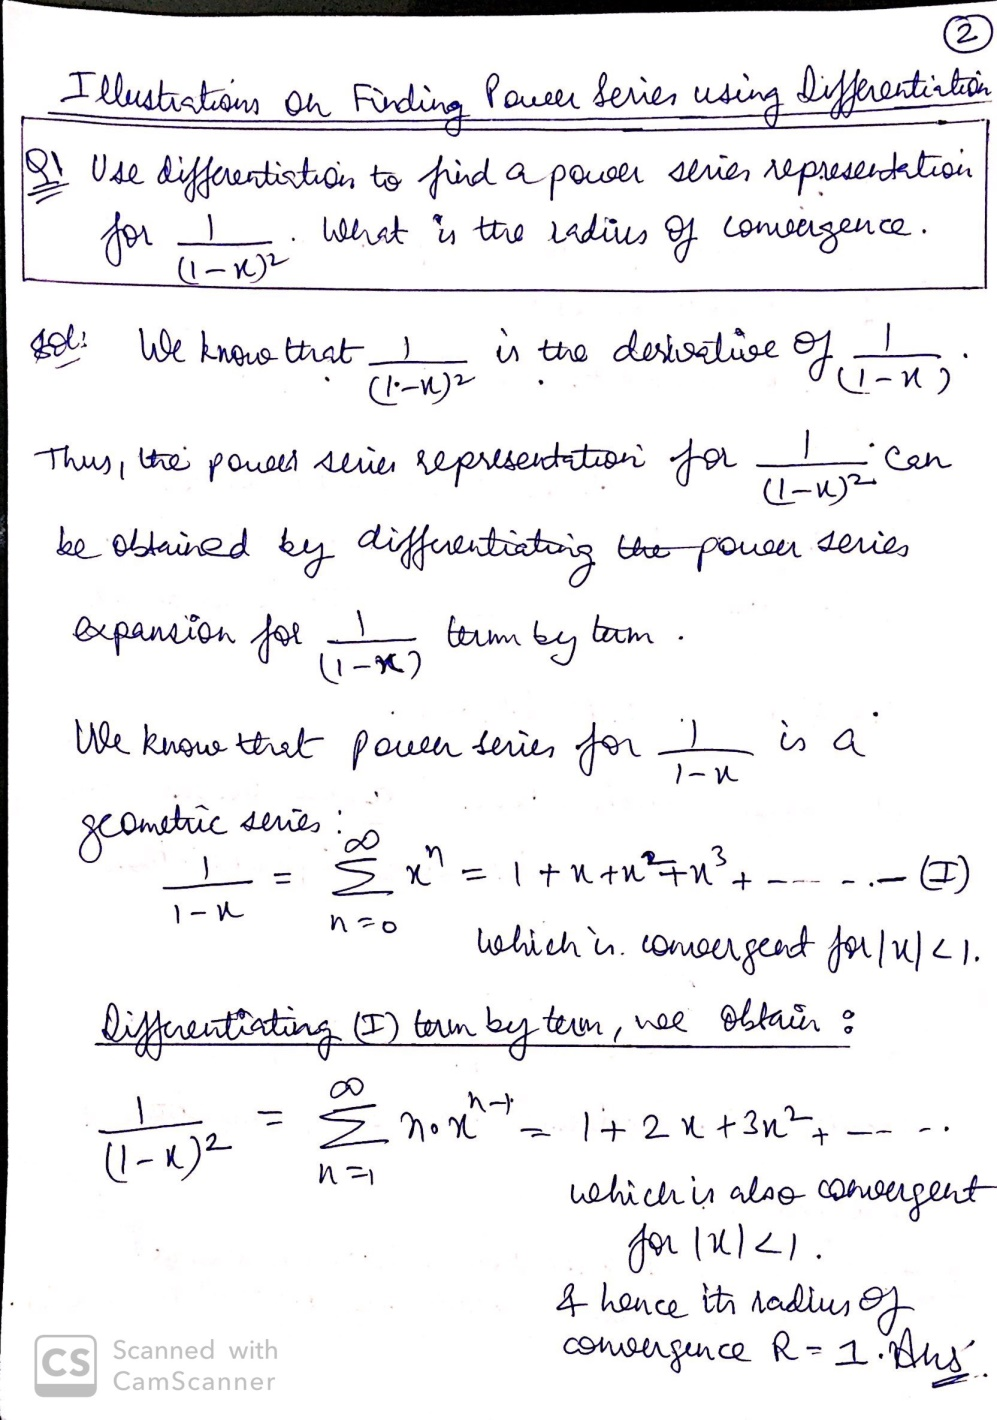 2
Illustrations on Finding Power Series using Differentiation
Q1 Use differentiation to find a power series representation
for 1/(1-x)². What is the radius of convergence.
Sol: We know that 1/(1-x)² is the derivative of 1/(1-x).
Thus, the power series representation for 1/(1-x)² can
be obtained by differentiating the power series
expansion for 1/(1-x) term by term.
We know that power series for 1/1-x is a
geometric series:
1/1-x = ∞ Σ n=0 xⁿ = 1+x+x²+x³+ ------ (I)
which is convergent for |x|<1.
Differentiating (I) term by term, we obtain:
1/(1-x)² = ∞ Σ n=1 n·xⁿ⁻¹ = 1+2x+3x²+ ----
which is also convergent
for |x|<1.
& hence its radius of
convergence R=1. Ans.
CS Scanned with
CamScanner